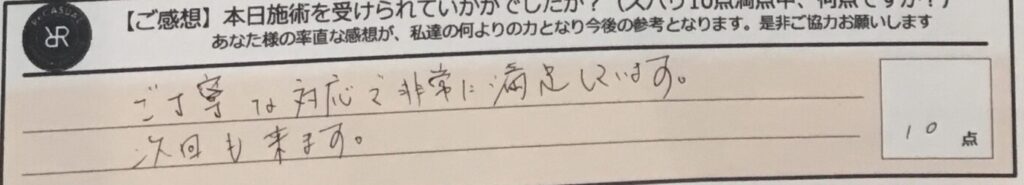 【ご感想】本日施術を受けられていかがでしたか？（ズバリ10点満点中、何点ですか？）
あなた様の率直な感想が、私達の何よりの力となり今後の参考となります。是非ご協力お願いします
ご丁寧な対応で非常に満足しています。
次回も来ます。
10 点